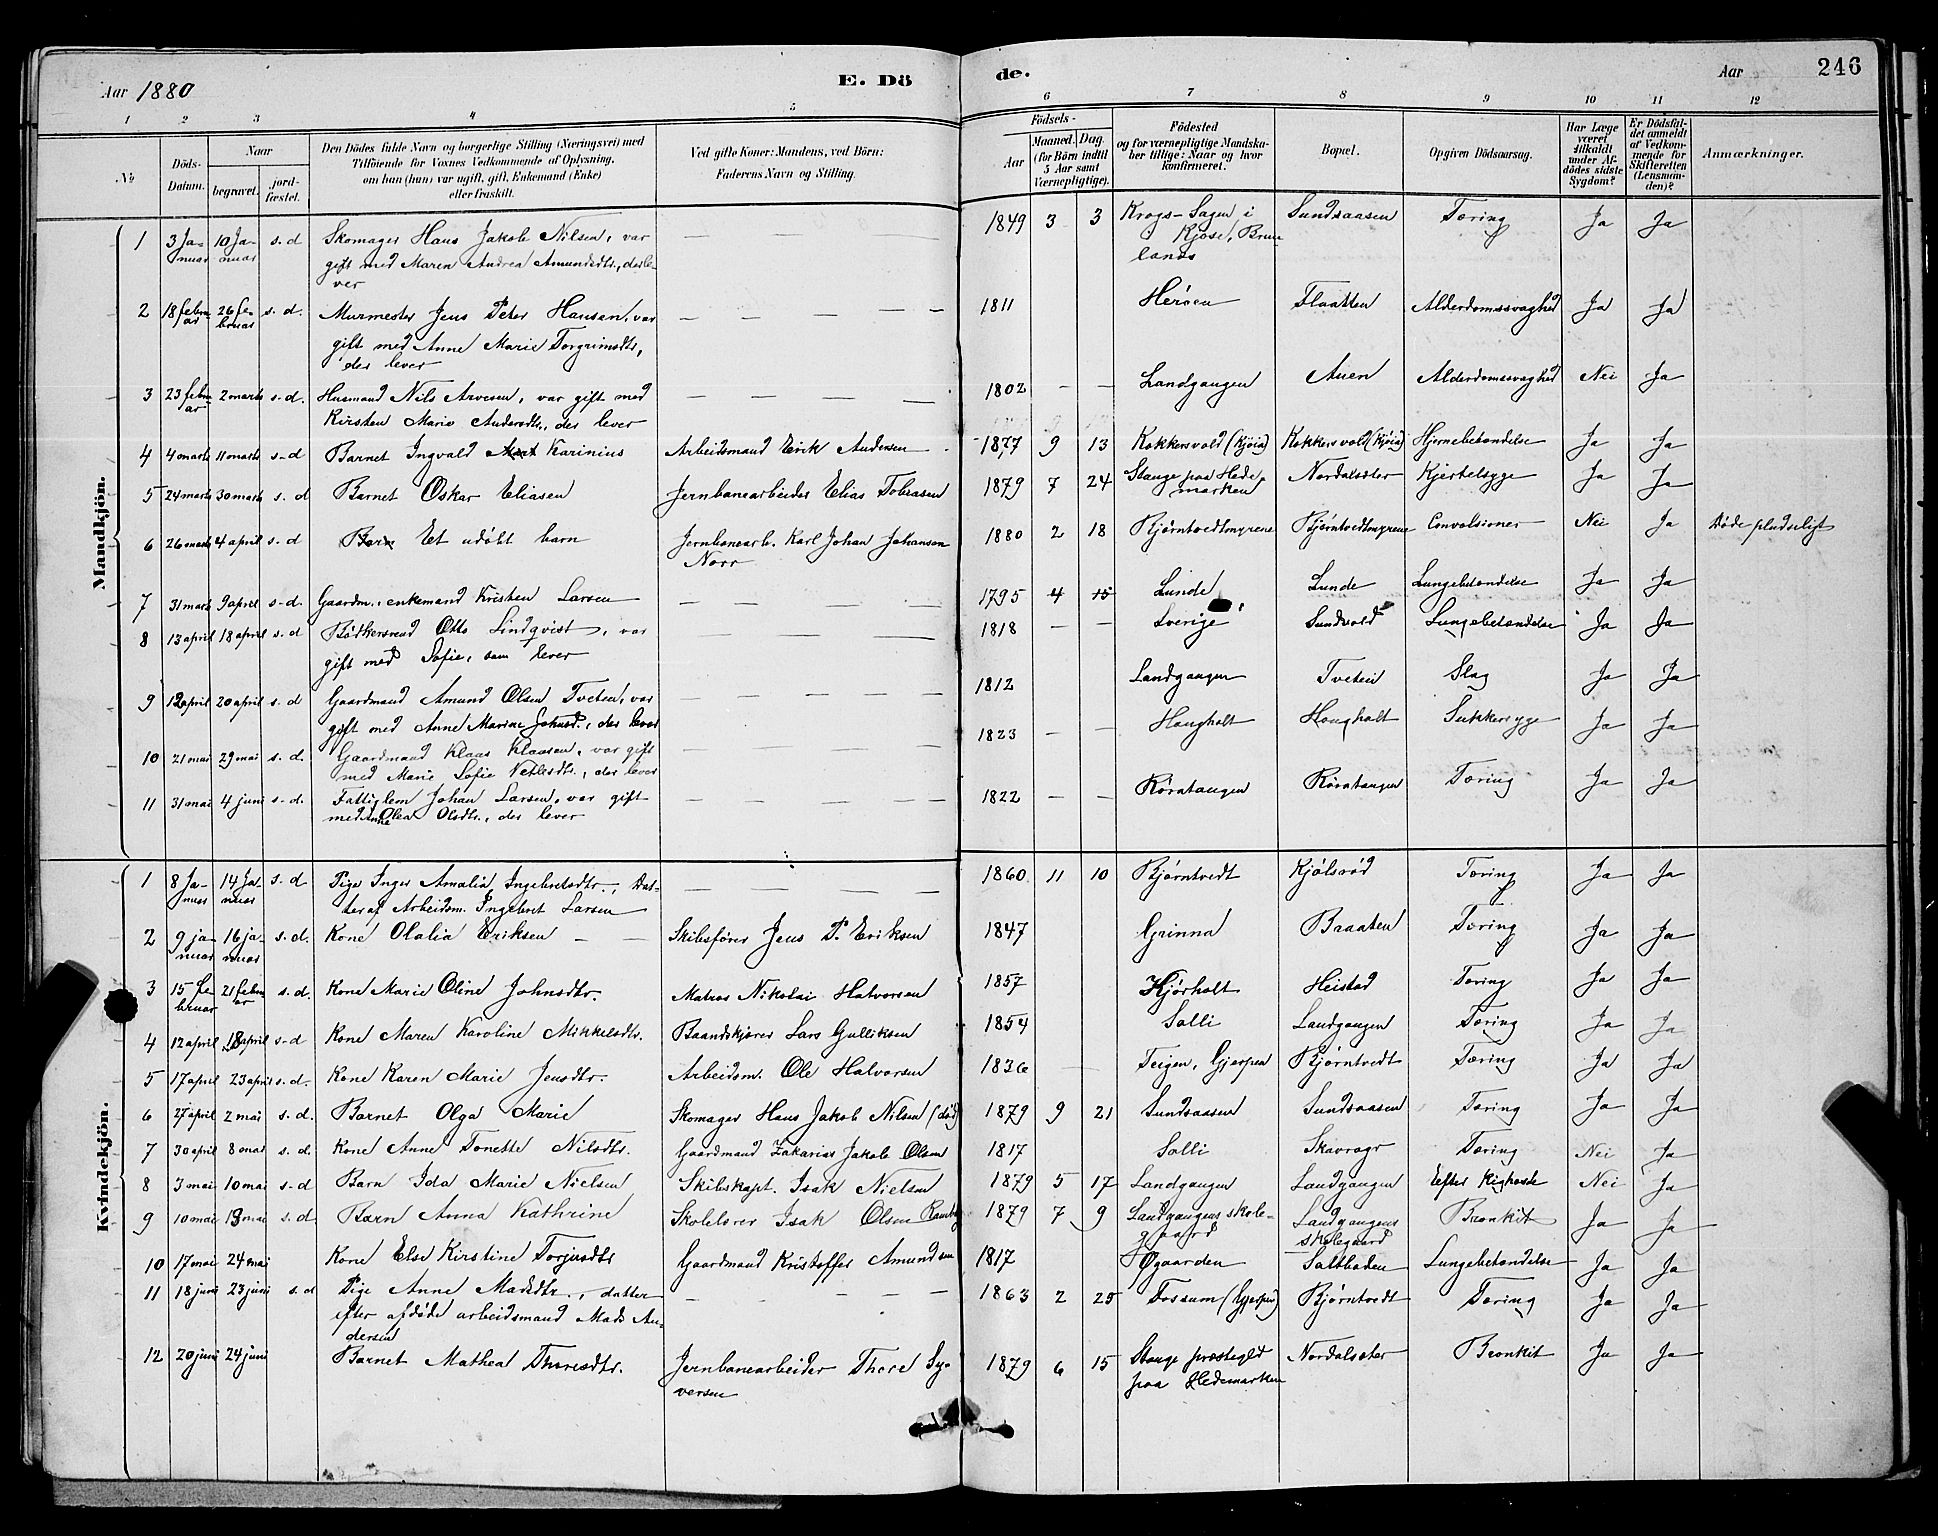 Aar 1880
E. Dö
de.
Aar
246
1 2 3 4 5 6 7 8 9 10 11 12
No
Döds-Datum.
Naar
begravet.
jord-fæstet.
Den Dödes fulde Navn og borgerlige Stilling (Næringsvei) med
Tilföiende for Voxnes Vedkommende af Oplysning,
om han (hun) var ugift, gift, Enkemand (Enke)
eller fraskilt.
Ved gifte Koner: Mandens, ved Börn:
Faderens Navn og Stilling.
Födsels-
Aar
Maaned. Dag.
(for Börn indtil
5 Aar samt
Værnepligtige).
Födested
og for værnepligtige Mandska-
ber tillige: Naar og hvor
konfirmeret.
Bopæl.
Opgiven Dödsaarsag.
Har Læge
været
tilkaldt
under Af-
dødes sidste
Sygdom?
Er Dödsfal-
det anmeldt
af Vedkom-
mende for
Skifteretten
(Lensman-
den)?
Anmærkninger.
Mandkjön.
1 3 Ja- 10 Ja- s. d Skomager Hans Jakob Nilsen, var 1849 3 3 Krogs- i Sundsaasen Tæring Ja Ja
nuar nuar gift med Maren Andrea Amundsdtr., der le- Kjose, Brun
ver lanæs
2 18 febru 26 fe- s. d. Murmester Jens Peter Hansen, var — — — — 1811 Herøen Flaatten Alderdomssvaghed Ja Ja
ar bruar gift med Anne Marie Torgrimsdtr,
der lever
3 23 febru 2 marts s. d. Husmand Nils Arvesen, var gift med — — — — 1802 — — Landgangen Auen Alderdomssvaghed Nei Ja
ar Kirsten Marie Andersdtr., der lever
4 4 marts 11 marts s. d Barnet Ingvald Karinius Arbeidsmand Erik Andersen 1877 9 13 Kokkersvold (Kjøia) Kokkersvold (Kjøia) Hjernebetændelse Ja Ja
5 24 marts 30 marts s. d Barnet Oskar Eliasen Jernbanearbeider Elias Tobiasen 1879 7 24 Stange paa Hede- Nordalsæter Kjertelsyge Ja Ja
marken
6 26 marts 4 april s. d Barn Et udøbt barn Jernbanearb. Karl Johan Johansen 1880 2 18 Bjørntvedtmyrene Bjørntvedtmyrene Convolsioner Nei Ja Døde pludseligt
Norr
7 31 marts 9 april s. d. Gaardm., enkemand Kristen Larsen — — — — 1795 4 15 Lunde Lunde Lungebetændelse Ja Ja
8 13 april 18 april s. d Bødkersvend Otto Lindqvist, var — — — — 1818 — — Sverige Sundvold Lungebetændelse Ja Ja
gift med Sofie, som lever
9 12 april 20 april s. d Gaardmand Amund Olsen Tveten, var — — — — 1812 Landgangen Tveten Slag Ja Ja
gift med Anne Marine Johnsd., der lever
10 21 mai 29 mai s. d. Gaardmand Klaas Klaasen, var gift — — — — 1823 — — Hougholt Hougholt Sukkersyge Ja Ja
med Marie Sofie Netlesdtr., der lever
11 31 mai 4 juni s. d. Fattiglem Johan Larsen, var gift — — — — 1822 — — Røratangen Røratangen Tæring Ja Ja
med Anne Olea Olsdtr., der lever
Kvindekjön.
1 8 Ja- 14 Ja- s. d Pige Inger Amalia Ingebretsdtr., Dat- — — — — 1860 11 10 Bjørntvedt Kjølsrød Tæring Ja Ja
nuar nuar ter af Arbeidsm. Ingebret Larsen
2 9 ja- 16 ja- s. d. Kone Olalia Eriksen — — Skibsfører Jens P. Eriksen 1847 Grinna Braaten Tæring Ja Ja
nuar nuar
3 15 fe- 21 febru s. d. Kone Marie Oline Johnsdtr. Matros Nikolai Halvorsen 1857 Hjørholt Heistad Tæring Ja Ja
bruar ar
4 12 april 18 april s. d Kone Maren Karoline Mikkelsdtr. Baandskjærer Lars Gulliksen 1854 Salli Landgangen Tæring Ja Ja
5 17 april 23 april s. d. Kone Karen Marie Jensdtr. Arbeidsm. Ole Halvorsen 1836 — Teigen, Gjerpen Bjørntvedt Tæring Ja Ja
6 27 april 2 mai s. d. Barnet Olga Marie Skomager Hans Jakob Nilsen (død) 1879 9 21 Sundsaasen Sundsaasen Tæring Ja Ja
7 30 april 8 mai s. d. Kone Anne Tonette Nilsdtr. Gaardmand Zakarias Jakob Olsen 1817 Salli Skavrager Tæring Nei Ja
8 3 mai 10 mai s. d Barn Ida Marie Nielsen Skibskapt. Isak Nielsen 1879 5 17 Landgangen Landgangen Efter Kighoste Nei Ja
9 10 mai 19 mai s. d Barn Anna Kathrine Skolelærer Isak Olsen 1879 7 9 Landgangens skole- Landgangens Bronkit Ja Ja
gaard skolegaard
10 17 mai 24 mai Kone Else Kirstine Torgersdtr Gaardmand Kristoffer Amundsen 1817 Øgaarden Saltboden Lungebetændelse Ja Ja
11 18 juni 23 juni s. d Pige Anne Madsdtr., datter — — — — 1863 2 25 Fossum (Gjerpen) Bjørntvedt Tæring Ja Ja
efter afdøde arbeidsmand Mads An-
dersen
12 20 juni 24 juni Barnet Mathea Thoresdtr. Jernbanearbeider Thore Sy- 1879 6 15 Stange præstegld Nordalsæter Bronkit Ja Ja
versen paa Hedemarken